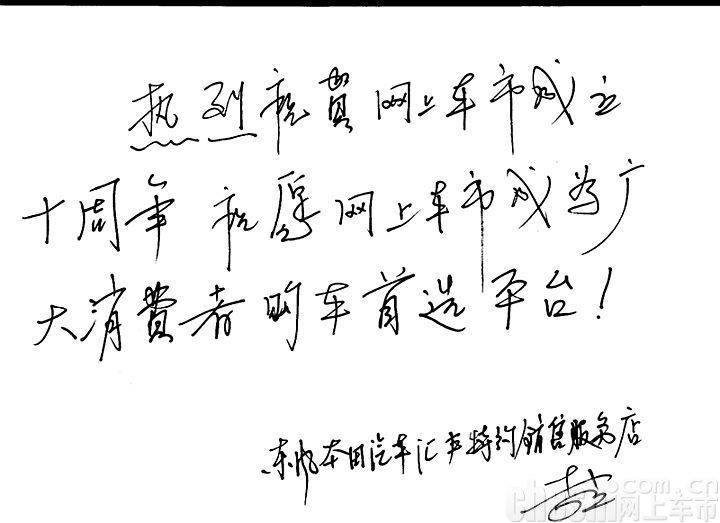 热烈祝贺网上车市成立
十周年 祝愿网上车市成为广
大消费者购车首选平台!
东风本田汽车汇丰特约销售服务店
cheshi.com.cn
网上车市